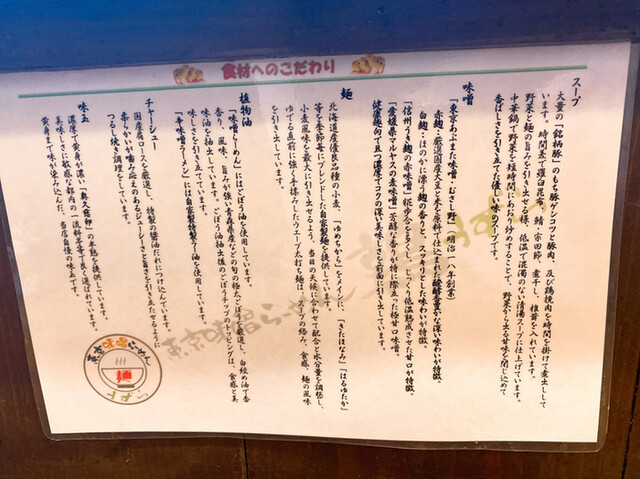 食材へのこだわり
スープ
大量の「銘柄豚」のもち豚ゲンコツと豚肉、及び鶏挽肉を時間を掛けて煮出しして
います。一時間煮て羅臼昆布、鯖・宗田節、煮干し、椎茸を入れています。
野菜と麺の旨みを引き出せる様、低温で混濁のない清湯スープに仕上げています。
中華鍋で野菜を短時間にあおり炒めすることで、野菜から出る甘味を閉じ込めて
香ばしさを引き立てた優しい味のスープです。
味噌
「東京あぶまた味噌・むさし野」明治一八年創業
赤麹・厳選国産大豆と米を原料で仕込まれた
白麹・ほのかに漂う麹の香りと、スッキリとした味わいが特徴。
「信州うき麹の赤味噌」糀歩合を多くし、じっくり低温熟成させた甘口が特徴。
「愛媛県マルヤスの麦味噌」芳醇な香りが特に際立った極甘口味噌。
健康趣向で且つ濃厚でコクの深い美味しさを前面に引き出しています。
麺
北海道産優良品種の小麦、「ゆめちから」をメインに、「きたほなみ」「はるゆたか」
等を季節毎にブレンドした自家製麺を提供しています。
小麦風味を最大に引き出せるよう、当日の天候に合わせて配合と水分量を調整し、
ゆでる直前に強く手揉みしたウエーブ太打ち麺は、スープの絡み、食感、麺の風味
を引き出しています。
植物油
「味噌らーめん」にはごぼう油を使用しています。
香り、風味、旨みが強い青森県産などの旬の極太ごぼうを厳選し、白絞め油で香
味油を抽出しています。ごぼう油抽出後のごぼうチップのトッピングは、食感と美
味しさを引き立てています。
「辛味噌ラーメン」には自家製特製ラー油を使用しています。
チャーシュー
国産肩ロースを厳選し、特製の醤油だれにつけ込んでいます。
柔らかいが噛み応えのあるジューシーさと旨さを引き立たせるように
つるし焼き調理をしています。
味玉
濃厚で黄身が濃い「奥久慈卵」の半熟を提供しています。
美味しさに敏感な都内の一流料亭等で良く選ばれています。
黄身まで味が染み込んだ、当店自慢の味玉です。
東京味噌らーめん
東京味噌らーめん
麺